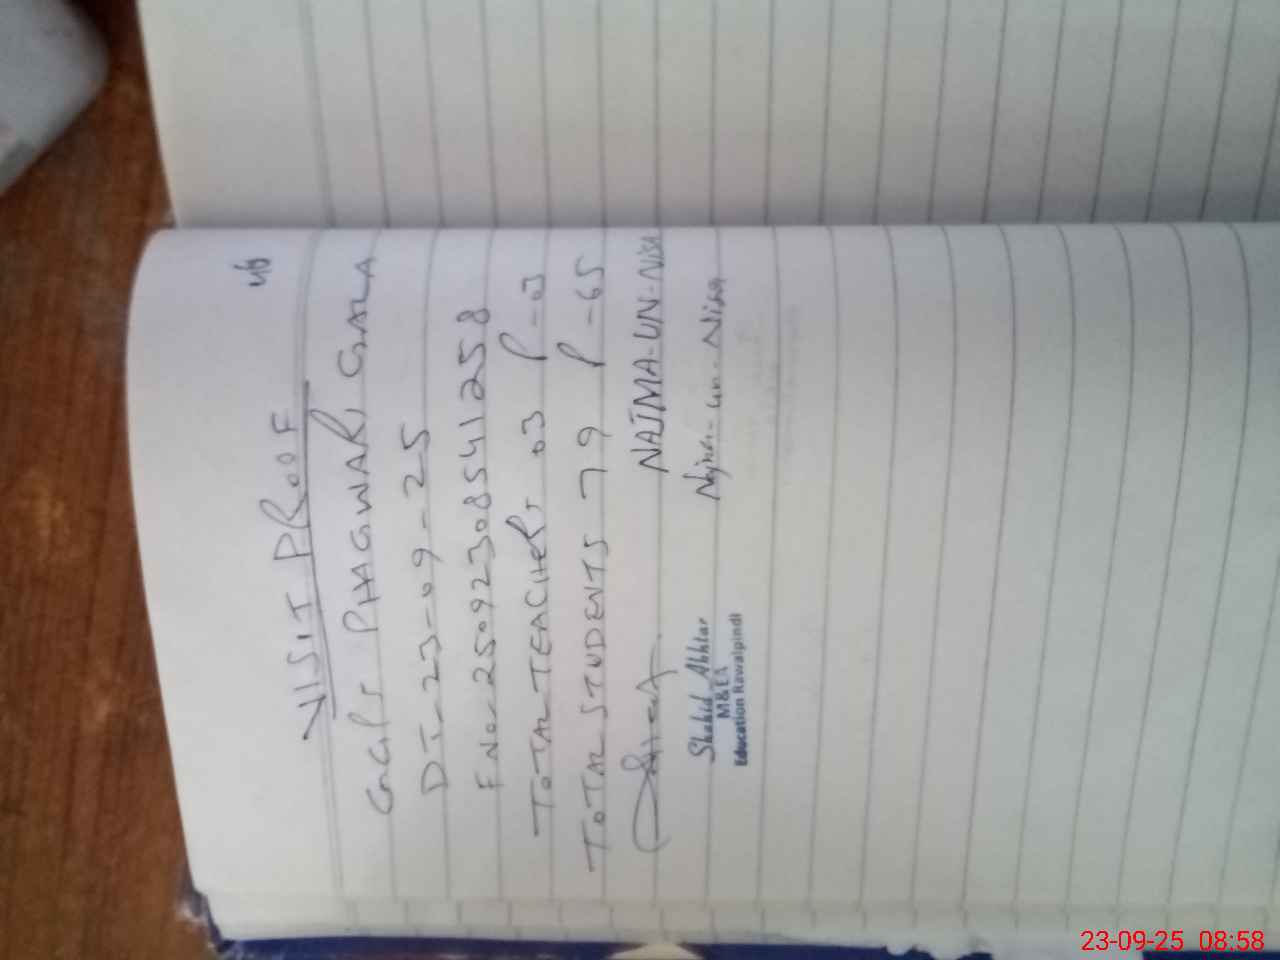 46
VISIT PROOF
GGPS PHAGWARI GALA
DT-23-09-25
F No-250923085411258
TOTAL TEACHERS 03 P-03
TOTAL STUDENTS 79 P-65
NAJMA-UN-NISA
Shahid Akhtar Najma-un-Nisa
M&EA
Education Rawalpindi
23-09-25 08:58